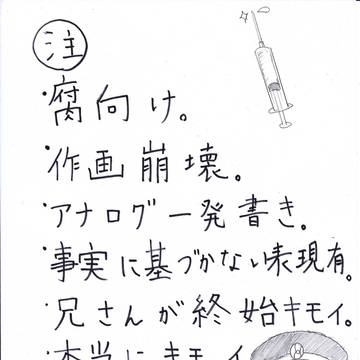 注
・腐向け。
・作画崩壊。
・アナログ一発書き。
・事実に基づかない表現有。
・兄さんが終始キモイ。
・本当にキモイ